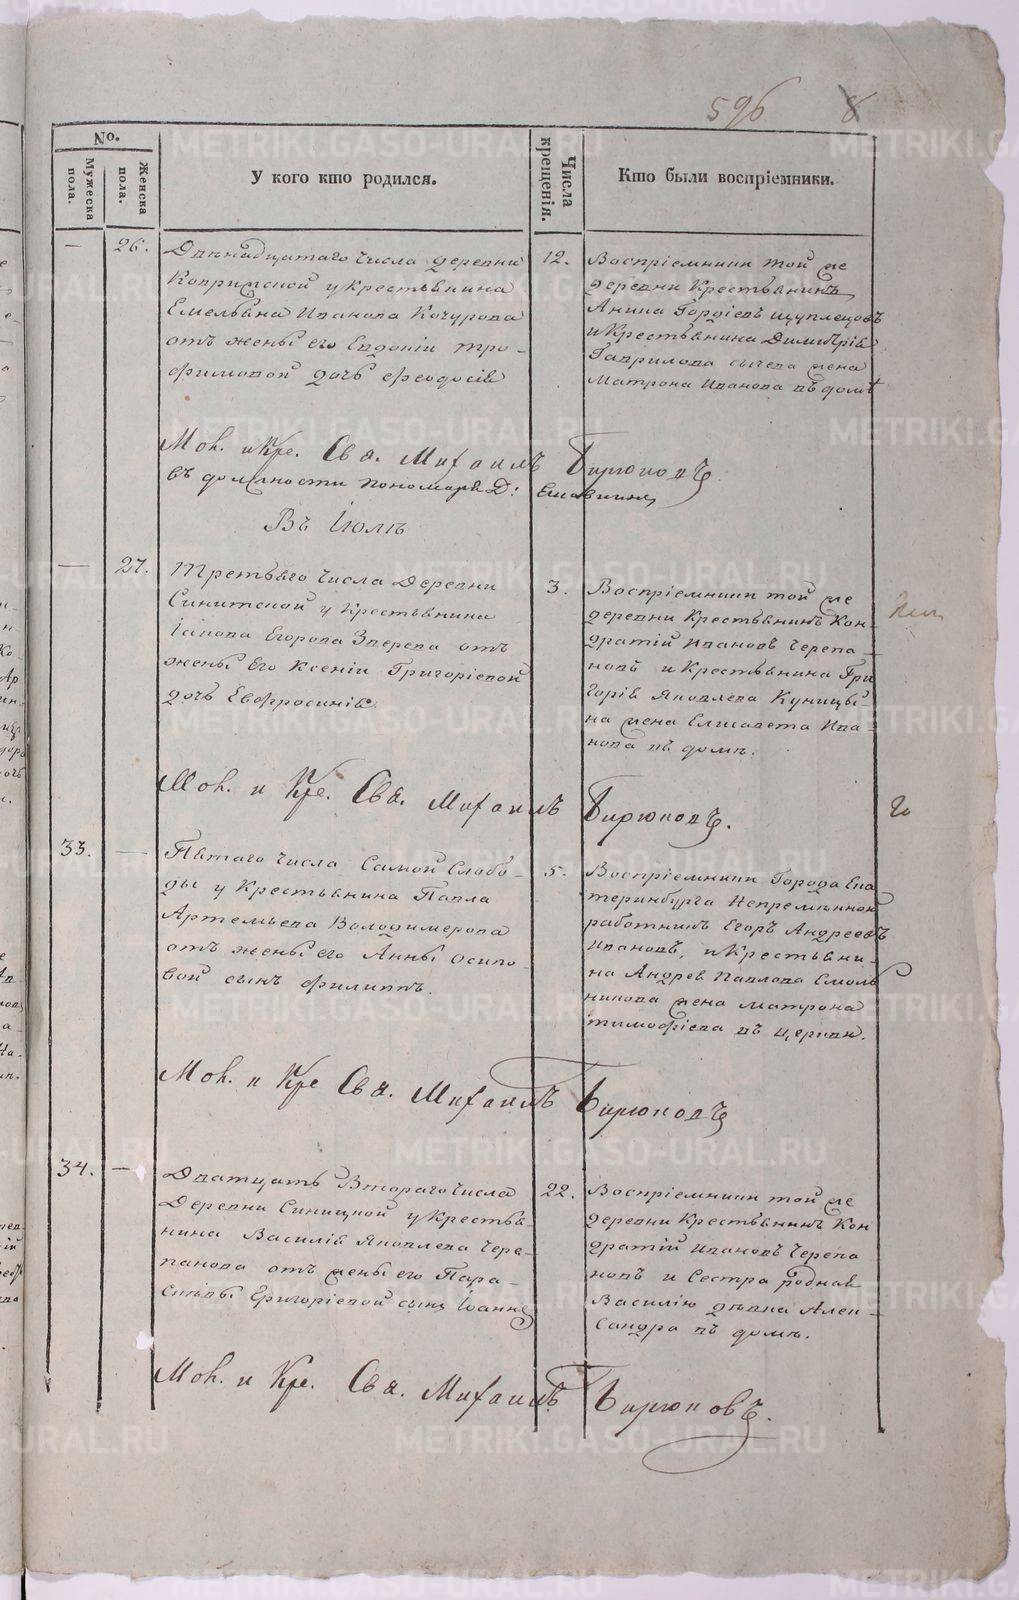 596 8
№.
Мужеска пола.
Женска пола.
У кого кто родился.
Числа крещенія.
Кто были воспріемники.
— 26.
Двѣнадцатаго числа деревни
Ковримской у крестьянина
Емельяна Иванова Кочурова
отъ жены его Евдокіи Тро-
фимовой дочь Феодосія
12.
Воспріемники той же
деревни Крестьянинъ
Аника Гордіевъ Щуплецовъ
и Крестьянина Димитрія
Гаврилова Сычева жена
Матрона Иванова въ домѣ
Мол. и Кре. Свя. Михаилъ Бирюковъ
въ должности пономаря Д:
Въ Іюлѣ
— 27.
Третьяго числа Деревни
Синитской у крестьянина
Іакова Егорова Зверева отъ
жены его Ксеніи Григоріевой
дочь Евфросинія
3.
Воспріемники той же
деревни Крестьянинъ Кон-
дратій Ивановъ Черепа-
новъ и Крестьянина Гри
горія Яковлева Куницы-
на жена Елисавета Ива-
нова въ домѣ.
Мол. и Кре. Свя. Михаилъ Бирюковъ.
33. —
Пятаго числа Самой Слобо-
ды у Крестьянина Павла
Артемьева Володимерова
отъ жены его Анны Осипо-
вой сынъ Филиппъ.
5.
Воспріемники Города Ека
теринбурга Непремѣнной
работникъ Егоръ Андреевъ
Ивановъ, и Крестьяни-
на Андрея Павлова Смоль
никова жена Матрона
Тимофіева въ церкви.
Мол. и Кре Свя. Михаилъ Бирюковъ
34. —
Дватцать Втораго числа
Деревни Синицкой у Крестья-
нина Василія Яковлева Чере-
панова отъ жены его Пара-
скевы Григоріевой сынъ Іоаннъ
22.
Воспріемники той же
деревни Крестьянинъ Кон
дратій Ивановъ Черепа
новъ и Сестра родная
Василію дѣвка Алек-
сандра въ домѣ.
Мол. и Кре. Свя. Михаилъ Бирюковъ.
METRIKI.GASO-URAL.RU